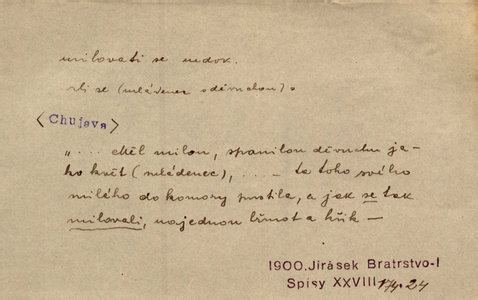 milovati se nedok.
rli se (mládenec s děvuchou).
<Chujava>
"... Měl milou, spanilou děvuchu ja-
ko květ (mládenec), ... – ta toho svého
milého do komory pustila, a jak se tak
milovali, najednou hřmot a křik –
1900. Jirásek Bratrstvo-I
Spisy XXVIII 24